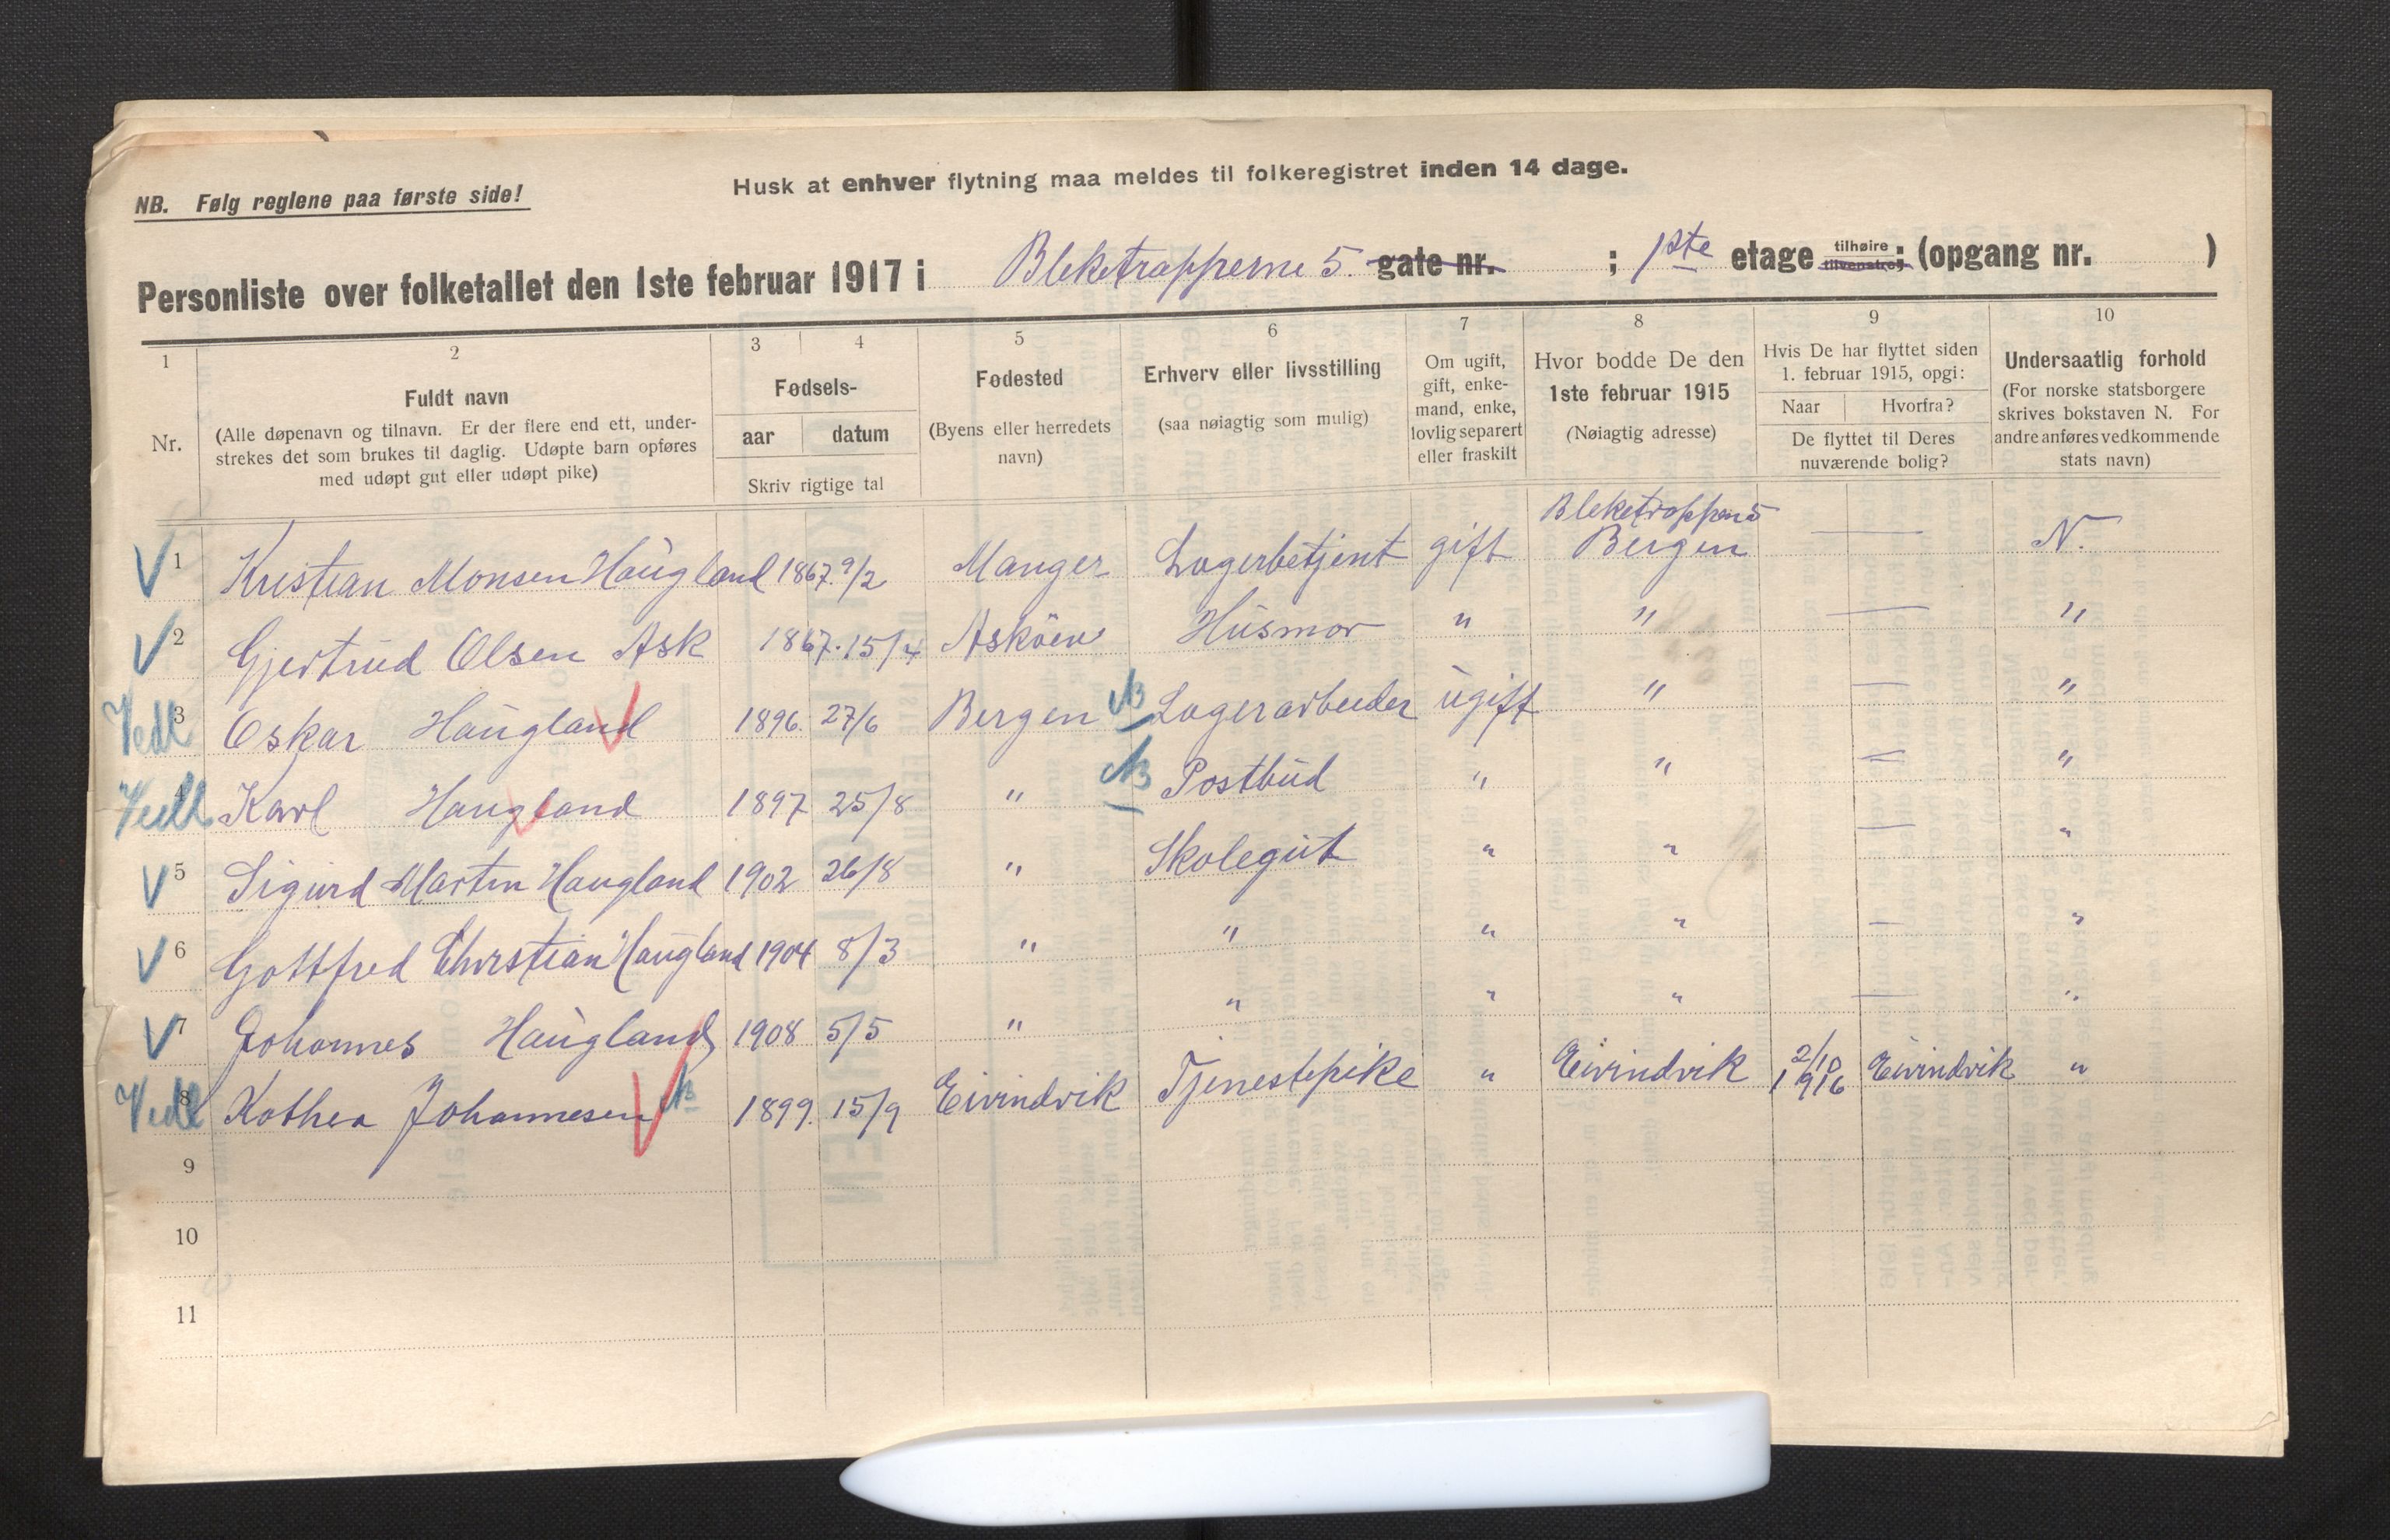 NB. Følg reglene paa første side!
Husk at enhver flytning maa meldes til folkeregistret inden 14 dage.
Personliste over folketallet den 1ste februar 1917 i Bleketrapperne 5. gate nr. ; 1ste etage tilhøire tilvenstre; (opgang nr. )
1 2 3 4 5 6 7 8 9 10
Nr.
Fuldt navn
(Alle døpenavn og tilnavn. Er der flere end ett, under-
strekes det som brukes til daglig. Udøpte barn opføres
med udøpt gut eller udøpt pike)
Fødsels-
aar datum
Skriv rigtige tal
Fødested
(Byens eller herredets
navn)
Erhverv eller livsstilling
(saa nøiagtig som mulig)
Om ugift,
gift, enke-
mand, enke,
lovlig separert
eller fraskilt
Hvor bodde De den
1ste februar 1915
(Nøiagtig adresse)
Hvis De har flyttet siden
1. februar 1915, opgi:
Naar Hvorfra?
De flyttet til Deres
nuværende bolig?
Undersaatlig forhold
(For norske statsborgere
skrives bokstaven N. For
andre anføres vedkommende
stats navn)
Bleketrappen 5
V 1 Kristian Monsen Haugland 1867. 9/2 Manger Lagerbetjent gift Bergen — N.
V 2 Gjertrud Olsen Ask 1867. 15/4 Asköen Husmor " " — "
Vedl 3 Oskar Haugland V 1896. 27/6 Bergen NB Lagerarbeider ugift " — "
Vedl 4 Karl Haugland V 1897 25/8 " NB Postbud " " — "
V 5 Sigurd Martin Haugland 1902 26/8 " Skolegut " " — "
V 6 Gottfred Christian Haugland 1904 8/3 " " " " — "
V 7 Johannes Haugland 1908 5/5 " " " " — "
Vedl 8 Kathea Johannesen V NB 1899. 15/9 Eivindvik Tjenestepike " Eivindvik 2/10 1916 Eivindvik "
9
10
11